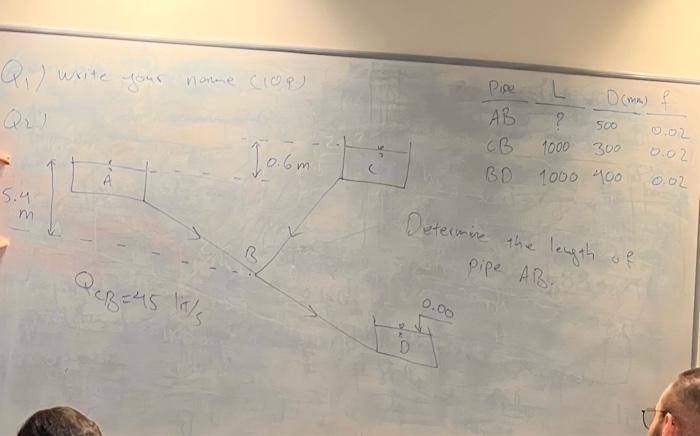 Q1) Write your name (10p)
Q2)
Pipe L D(mm) f
AB ? 500 0.02
CB 1000 300 0.02
BD 1000 400 0.02
0.6m
A
C
5.4 m
B
QCB=45 lit/s
Determine the length of
pipe AB.
0.00
D